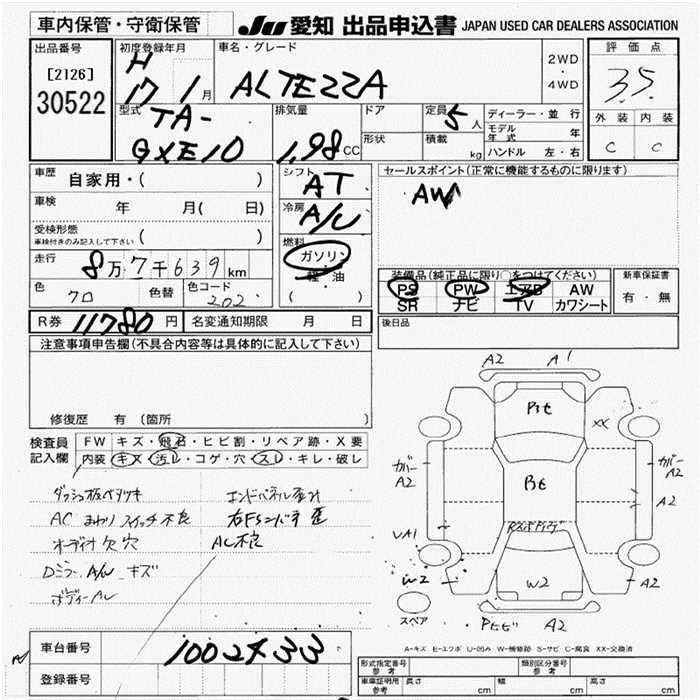 車内保管・守衛保管 JU 愛知 出品申込書 JAPAN USED CAR DEALERS ASSOCIATION
出品番号 初度登録年月 車名・グレード 2WD ・ 4WD 評価点
[2126] H 17 1月 ALTEZZA 3.5
30522 外装 内装
型式 TA-GXE10 排気量 1.98 CC ドア 形状 定員 5人 積載 kg ディーラー・並行 C C
モデル年式 年
ハンドル 左・右
車歴 自家用・( ) シフト AT セールスポイント(正常に機能するものに限ります)
車検 年 月( 日) 冷房 A/C AW
受検形態 ( )
車検付きのみ記入して下さい
燃料 ガソリン 軽・油 ( )
走行 8万7千639km
色 クロ 色替 色コード 202
装備品(純正品に限り○をつけてください) 新車保証書
PS PW エアB AW 有・無
SR ナビ TV カワシート
R券 11780円 名変通知期限 月 日 後日品
注意事項申告欄(不具合内容等は具体的に記入して下さい)
修復歴 有 (箇所
A2 A1
Pモ
XX
検査員記入欄 FW キズ・飛石・ヒビ割・リペア跡・X要
内装 キズ・汚レ・コゲ・穴・スレ・キレ・破レ
カバー A2 カバー A2
Bモ
A2
ダッシュ板ベタツキ
AC まわり スイッチ不良
オーディオ欠穴
Dミラー A/C キズ
AC不良
UA1
W2 W2 A2
スペア A2
A-キズ E-エクボ U-凹み W-補修跡 S-サビ C-腐食 XX-交換済
車台番号 1002433
登録番号
形式指定番号 参考 類別区分番号 参考
車庫証明用 参考 長さ cm 幅 cm 高さ cm